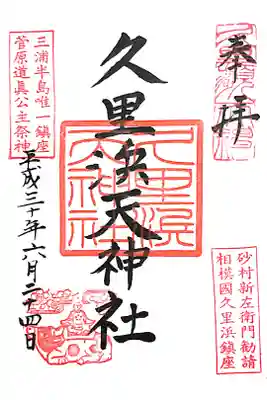 奉拝
三浦半島唯一鎮座
菅原道眞公主祭神
久里浜天神社
久里浜
天神社
平成三十年六月二十四日
砂村新左衛門勧請
相模國久里浜鎮座